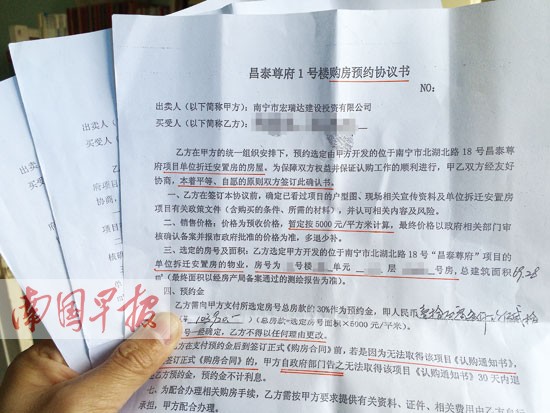 昌泰尊府1号楼购房预约协议书
NO:
出卖人（以下简称甲方）：南宁市宏瑞达建设投资有限公司
买受人（以下简称乙方）：
乙方在甲方的统一组织安排下，预约选定由甲方开发的位于南宁市北湖北路18号昌泰尊
府项目单位拆迁安置房的房屋。为保障双方权益并保证认购工作的顺利进行，甲乙双方经友好
协商，本着平等、自愿的原则双方签订此确认书。
一、乙方在签订本协议前，确定已看过项目的户型图、现场相关宣传资料及单位拆迁安置房
项目有关政策文件（含购买的条件、所需的材料），并认可相关内容及风险。
二、销售价格：价格为预收价格，暂定按5000元/平方米计算，最终价格以政府相关部门审
核确认备案并报市政府批准的价格为准，多退少补。
三、选定的房号及面积：乙方选定甲方开发的位于南宁市北湖北路18号“昌泰尊府”项目的
单位拆迁安置房的物业，房号为 号楼 单元 层 号房，总建筑面积69.28
㎡（最终面积以经房产局备案通过的测绘报告为准）。
四、预约金
乙方需向甲方支付所选定房号总房款的30%作为预约金，即人民币
（总房款=选定房号面积×5000元/平方米）。
号一经确定，乙方不得以任何理由更改。
乙方在支付预约金后到签订正式《购房合同》前，若是因为无法取得该项目《认购通知书》，
签订正式《购房合同》的，甲方自政府部门告之无法取得该项目《认购通知书》30天内退
乙方预约金，预约金不计利息。
七、为配合办理相关购房手续，乙方需按甲方要求提供有关资料、证件，相关费用由乙方
承担，甲方配合办理。
出卖人
买受人
南国早报